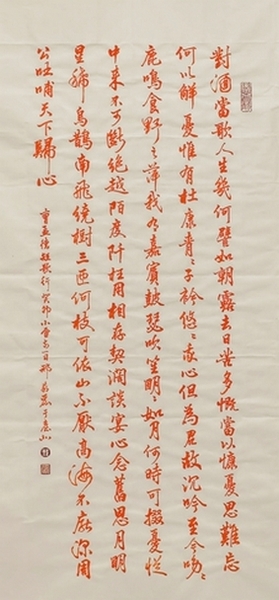 對酒當歌人生幾何譬如朝露去日苦多慨當以慷憂思難忘
何以解憂惟有杜康青々子衿悠々我心但為君故沉吟至今呦々
鹿鳴食野之蘋我有嘉賓鼓瑟吹笙明々如月何時可掇憂從
中來不可斷絕越陌度阡枉用相存契闊談宴心念舊恩月明
星稀烏鵲南飛繞樹三匝何枝可依山不厭高海不厭深周
公吐哺天下歸心
曹孟德短歌行癸卯小